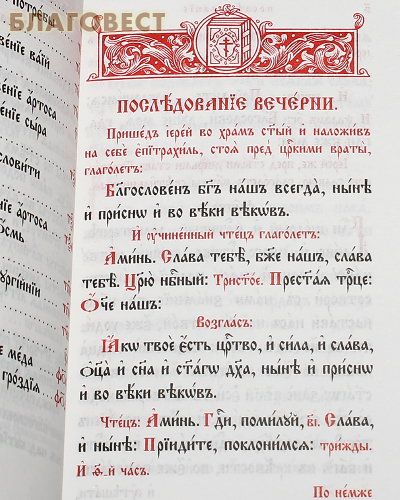 БЛАГОВЕСТ
ПОСЛѢ́ДОВАНЇЕ ВЕЧЕ́РНИ.
Прише́дъ їере́й во хра́мъ ст҃ы́й и҆ наложи́въ
на себѐ є҆пїтрахи́ль, стоѧ̀ пред̾ цр҃кими враты̀,
глаго́летъ:
Бл҃гослове́нъ бг҃ъ на́шъ всегда̀, ны́нѣ
и҆ при́снѡ и҆ во вѣ́ки вѣкѡ́въ.
И҆ ᲂу҆чине́нный чте́цъ глаго́летъ:
А҆ми́нь. Сла́ва тебѣ̀, бж҃е на́шъ, сла́ва
тебѣ̀. Цр҃ю̀ нбⷭ҇ный: Трист҃о́е. Прест҃а́ѧ трⷪ҇це:
Ѻ҆́ч҃е на́шъ:
Во́згласъ:
Ꙗ҆́кѡ твоѐ є҆́сть црⷭ҇тво, и҆ си́ла, и҆ сла́ва,
ѻ҆ц҃а̀ и҆ сн҃а и҆ ст҃а́гѡ дх҃а, ны́нѣ и҆ при́снѡ
и҆ во вѣ́ки вѣкѡ́въ.
Чте́цъ: А҆ми́нь. Гдⷭ҇и, поми́лꙋй, в҃і. Сла́ва,
и҆ ны́нѣ: Прїиди́те, поклони́мсѧ: три́жды.
И҆ ѳ҃-й ча́съ.
По не́мже
ве́нїе ва́їй
ве́нїе а҆́ртоса
ве́нїе сы́ра
а҆́ртоса
ме́да
гро́здїѧ